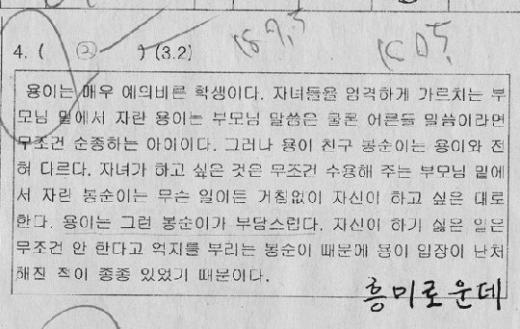 4. ( ② ) (3.2)
용이는 매우 예의바른 학생이다. 자녀들을 엄격하게 가르치는 부
모님 밑에서 자란 용이는 부모님 말씀은 물론 어른들 말씀이라면
무조건 순종하는 아이이다. 그러나 용이 친구 봉순이는 용이와 전
혀 다르다. 자녀가 하고 싶은 것은 무조건 수용해 주는 부모님 밑에
서 자란 봉순이는 무슨 일이든 거침없이 자신이 하고 싶은 대로
한다. 용이는 그런 봉순이가 부담스럽다. 자신이 하기 싫은 일은
무조건 안 한다고 억지를 부리는 봉순이 때문에 용이 입장이 난처
해진 적이 종종 있었기 때문이다.
흥미로운데